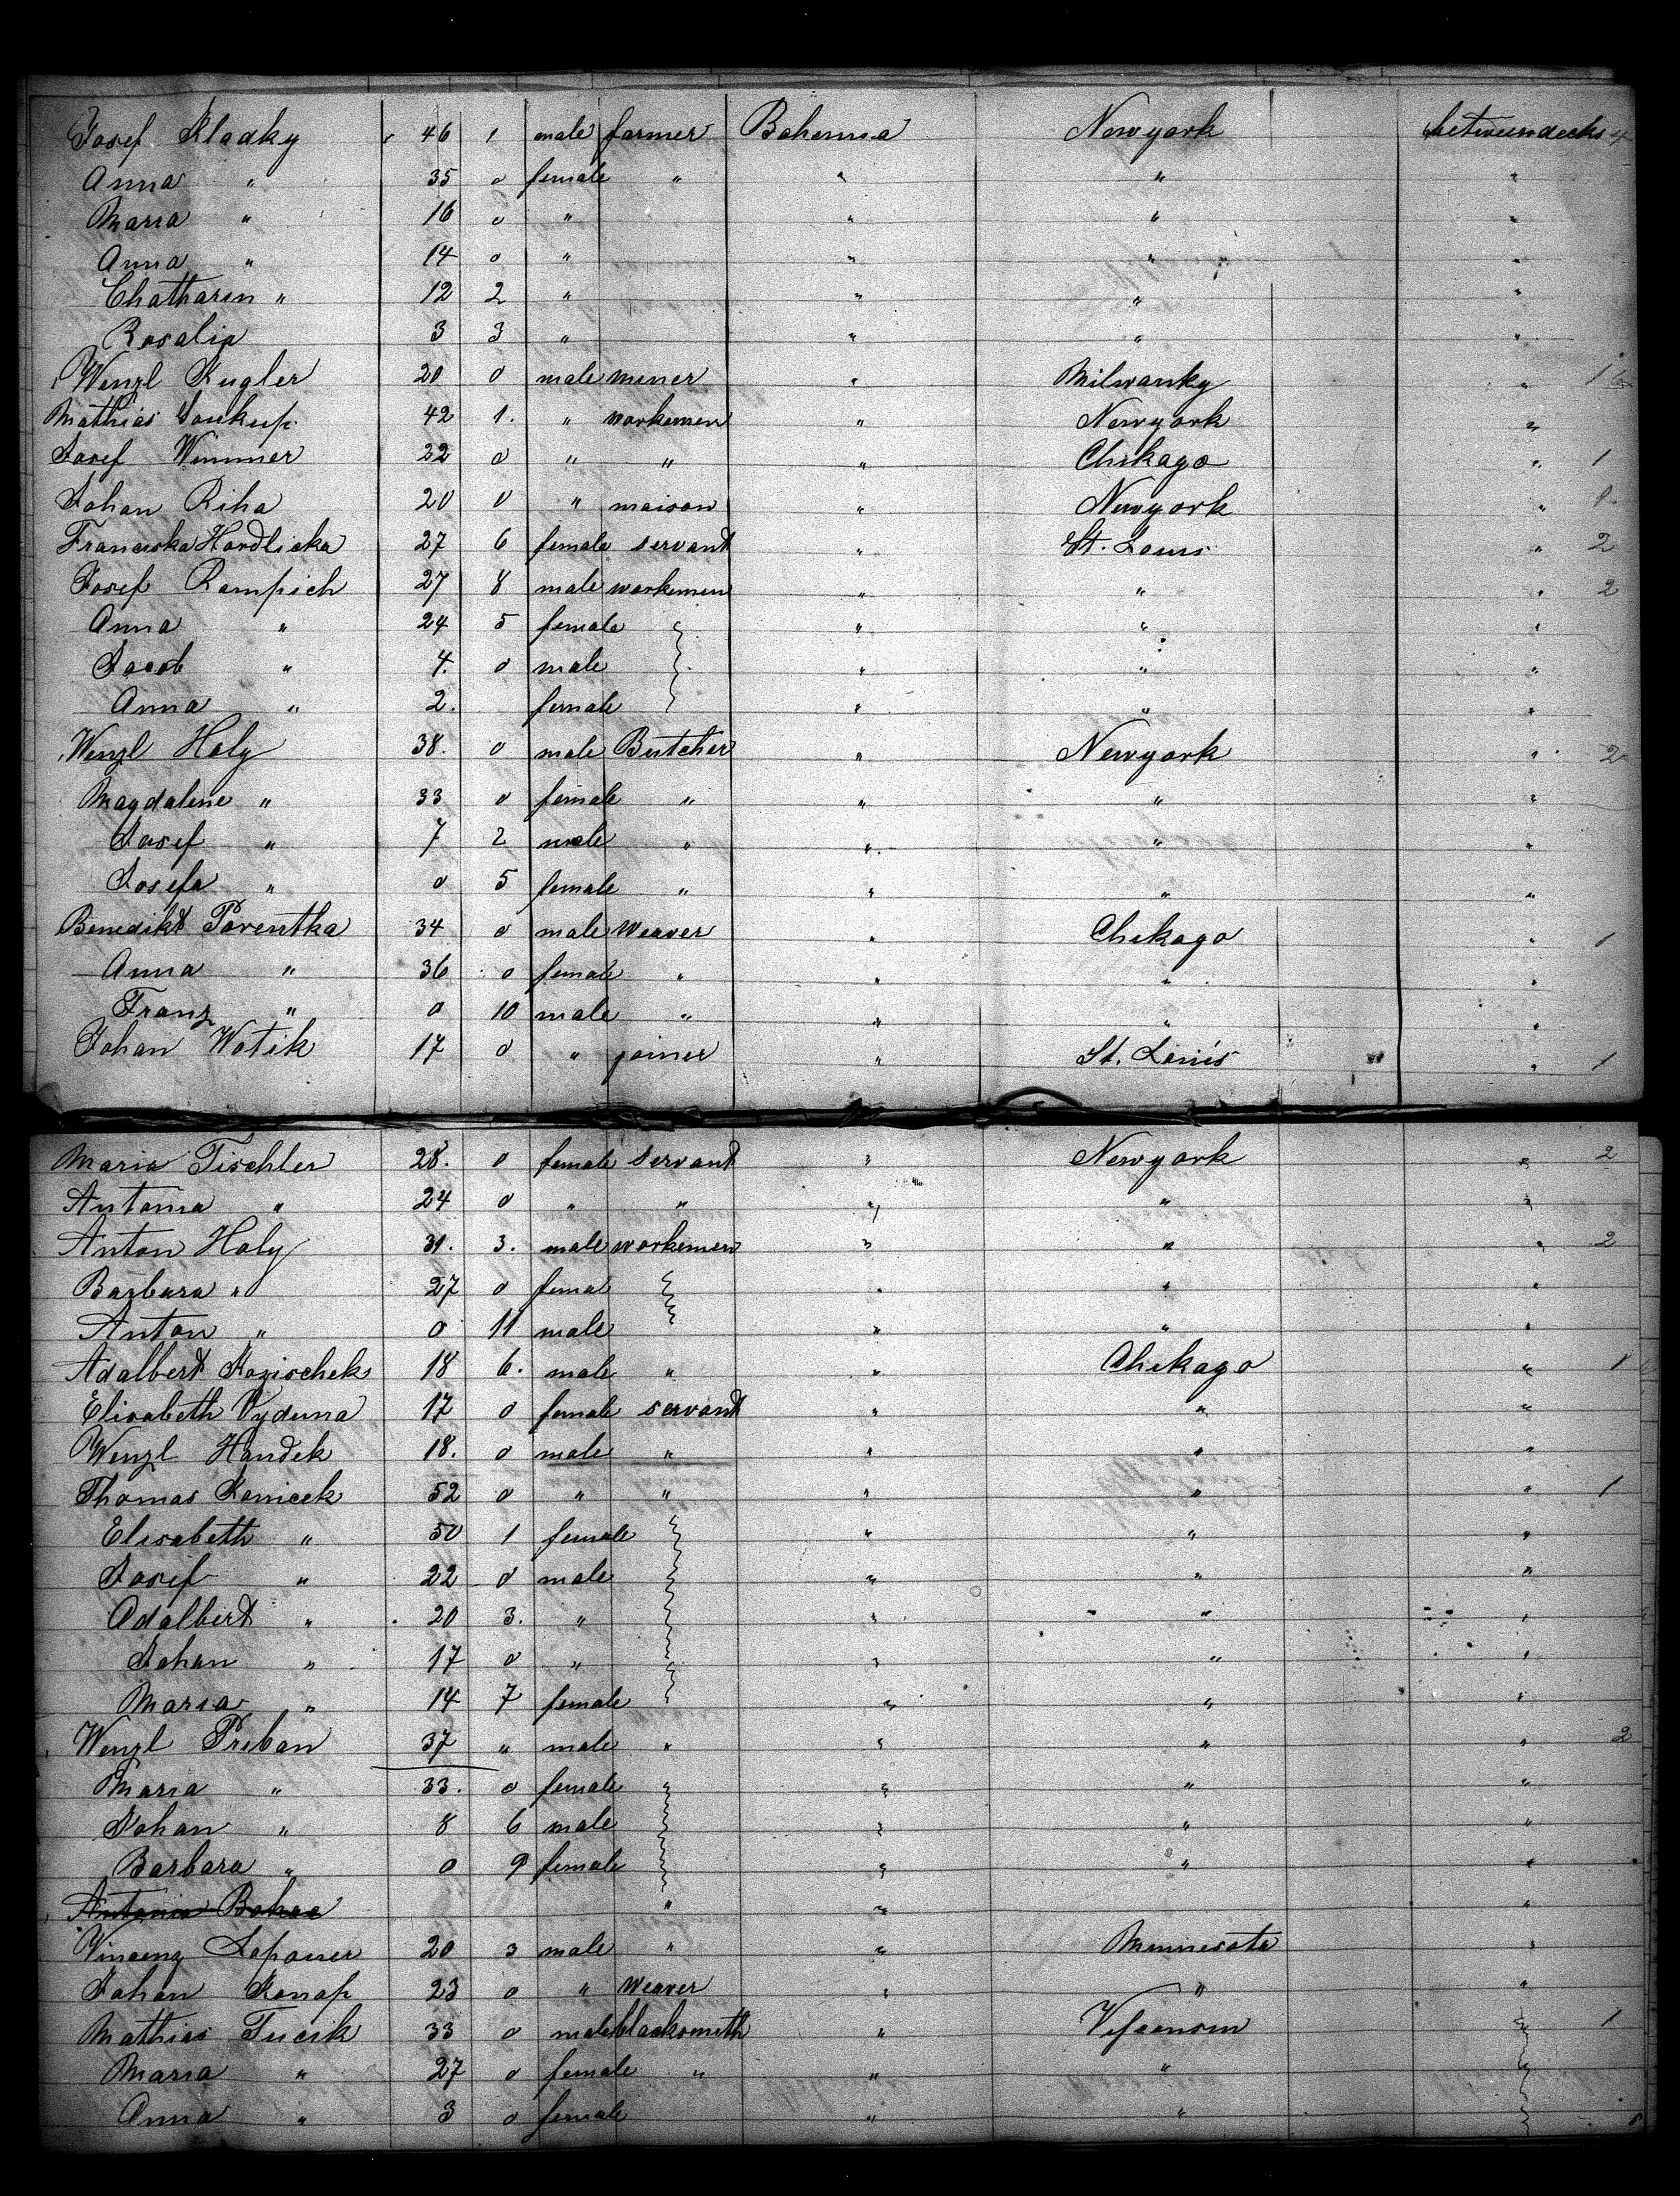 Josef Kladky 46 1 male farmer Bohemia Newyork betweendecks 4
Anna " 35 0 female " " " "
Maria " 16 0 " " " "
Anna " 14 0 " " " "
Chatharin " 12 2 " " " "
Rosalia 3 3 " " " "
Wenzl Kugler 20 0 male miner " Milwauky " 1
Mathias Soukup 42 1. " workemen " Newyork "
Josef Wimmer 22 0 " " " Chikago " 1
Johan Riha 20 0 " maison " Newyork " 1
Franciska Hardlicka 27 6 female servant " St. Louis " 2
Josef Rampich 27 8 male workemen " " " 2
Anna " 24 5 female " " "
Jacob " 4. 0 male " " "
Anna " 2. female " " "
Wenzl Holy 38. 0 male Butcher " Newyork " 2
Magdalene " 33 0 female " " " "
Josef " 7 2 male " " " "
Josefa " 0 5 female " " " "
Benedikt Parentka 34 0 male weaver " Chikago " 1
Anna " 36 0 female " " " "
Franz " 0 10 male " " " "
Johan Wotik 17 0 " joiner " St. Louis " 1
Maria Tischler 28. 0 female servant " Newyork " 2
Antonia " 24 0 " " " " "
Anton Holy 31. 3. male workemen " " " 2
Barbara " 27 0 femal " " "
Anton " 0 11 male " " "
Adalbert Kozischek 18 6. male " " Chikago " 1
Elisabeth Vyduna 17 0 female servant " " "
Wenzl Handek 18. 0 male " " " "
Thomas Konicek 52 0 " " " " " 1
Elisabeth " 50 1 female " " "
Josef " 22 0 male " " "
Adalbert " 20 3. " " " "
Johan " 17 0 " " " "
Maria " 14 7 female " " "
Wenzl Preban 37 " male " " " " 2
Maria " 33. 0 female " " " "
Johan " 8 6 male " " "
Barbara " 0 9 female " " "
Antonia Bohac " " "
Vincenz Laponer 20 3 male " " Minnesota "
Johan Konap 23 0 " weaver " " "
Mathias Tucik 33 0 male blacksmith " Visconsin 1
Maria " 27 0 female " " "
Anna " 3 0 female " "